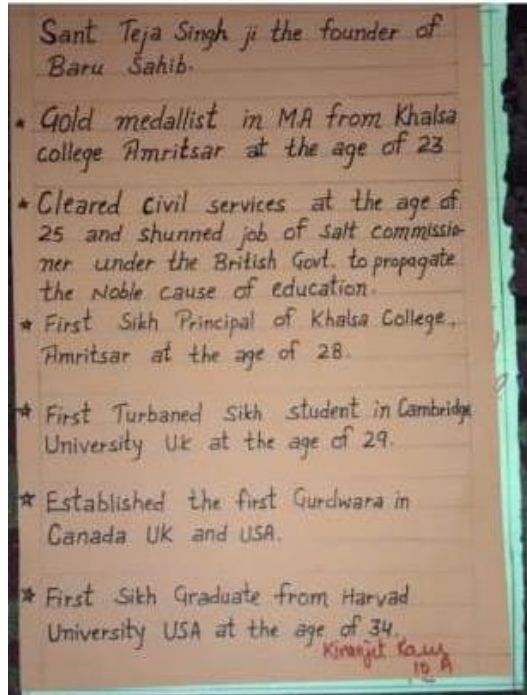 Sant Teja Singh ji the founder of
Baru Sahib.
* Gold medallist in MA from Khalsa
college Amritsar at the age of 23
* Cleared civil services at the age of
25 and shunned job of salt commissio-
ner under the British Govt. to propagate
the Noble cause of education.
* First Sikh Principal of Khalsa College,
Amritsar at the age of 28.
* First Turbaned Sikh student in Cambridge
University Uk at the age of 29.
* Established the first Gurdwara in
Canada UK and USA.
* First Sikh Graduate from Harvad
University USA at the age of 34.
Kiranjit Kaur
10 A